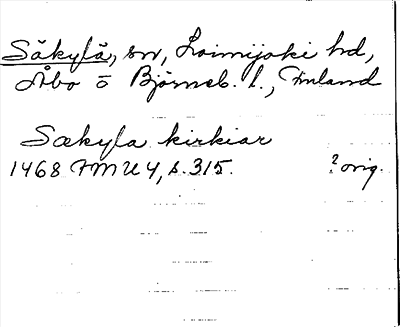 Säkylä, sn, Loimijoki hd,
Åbo o Björneb. l., Finland
Sækyla kirkiar
1468 FMU 4, s. 315. ? orig.